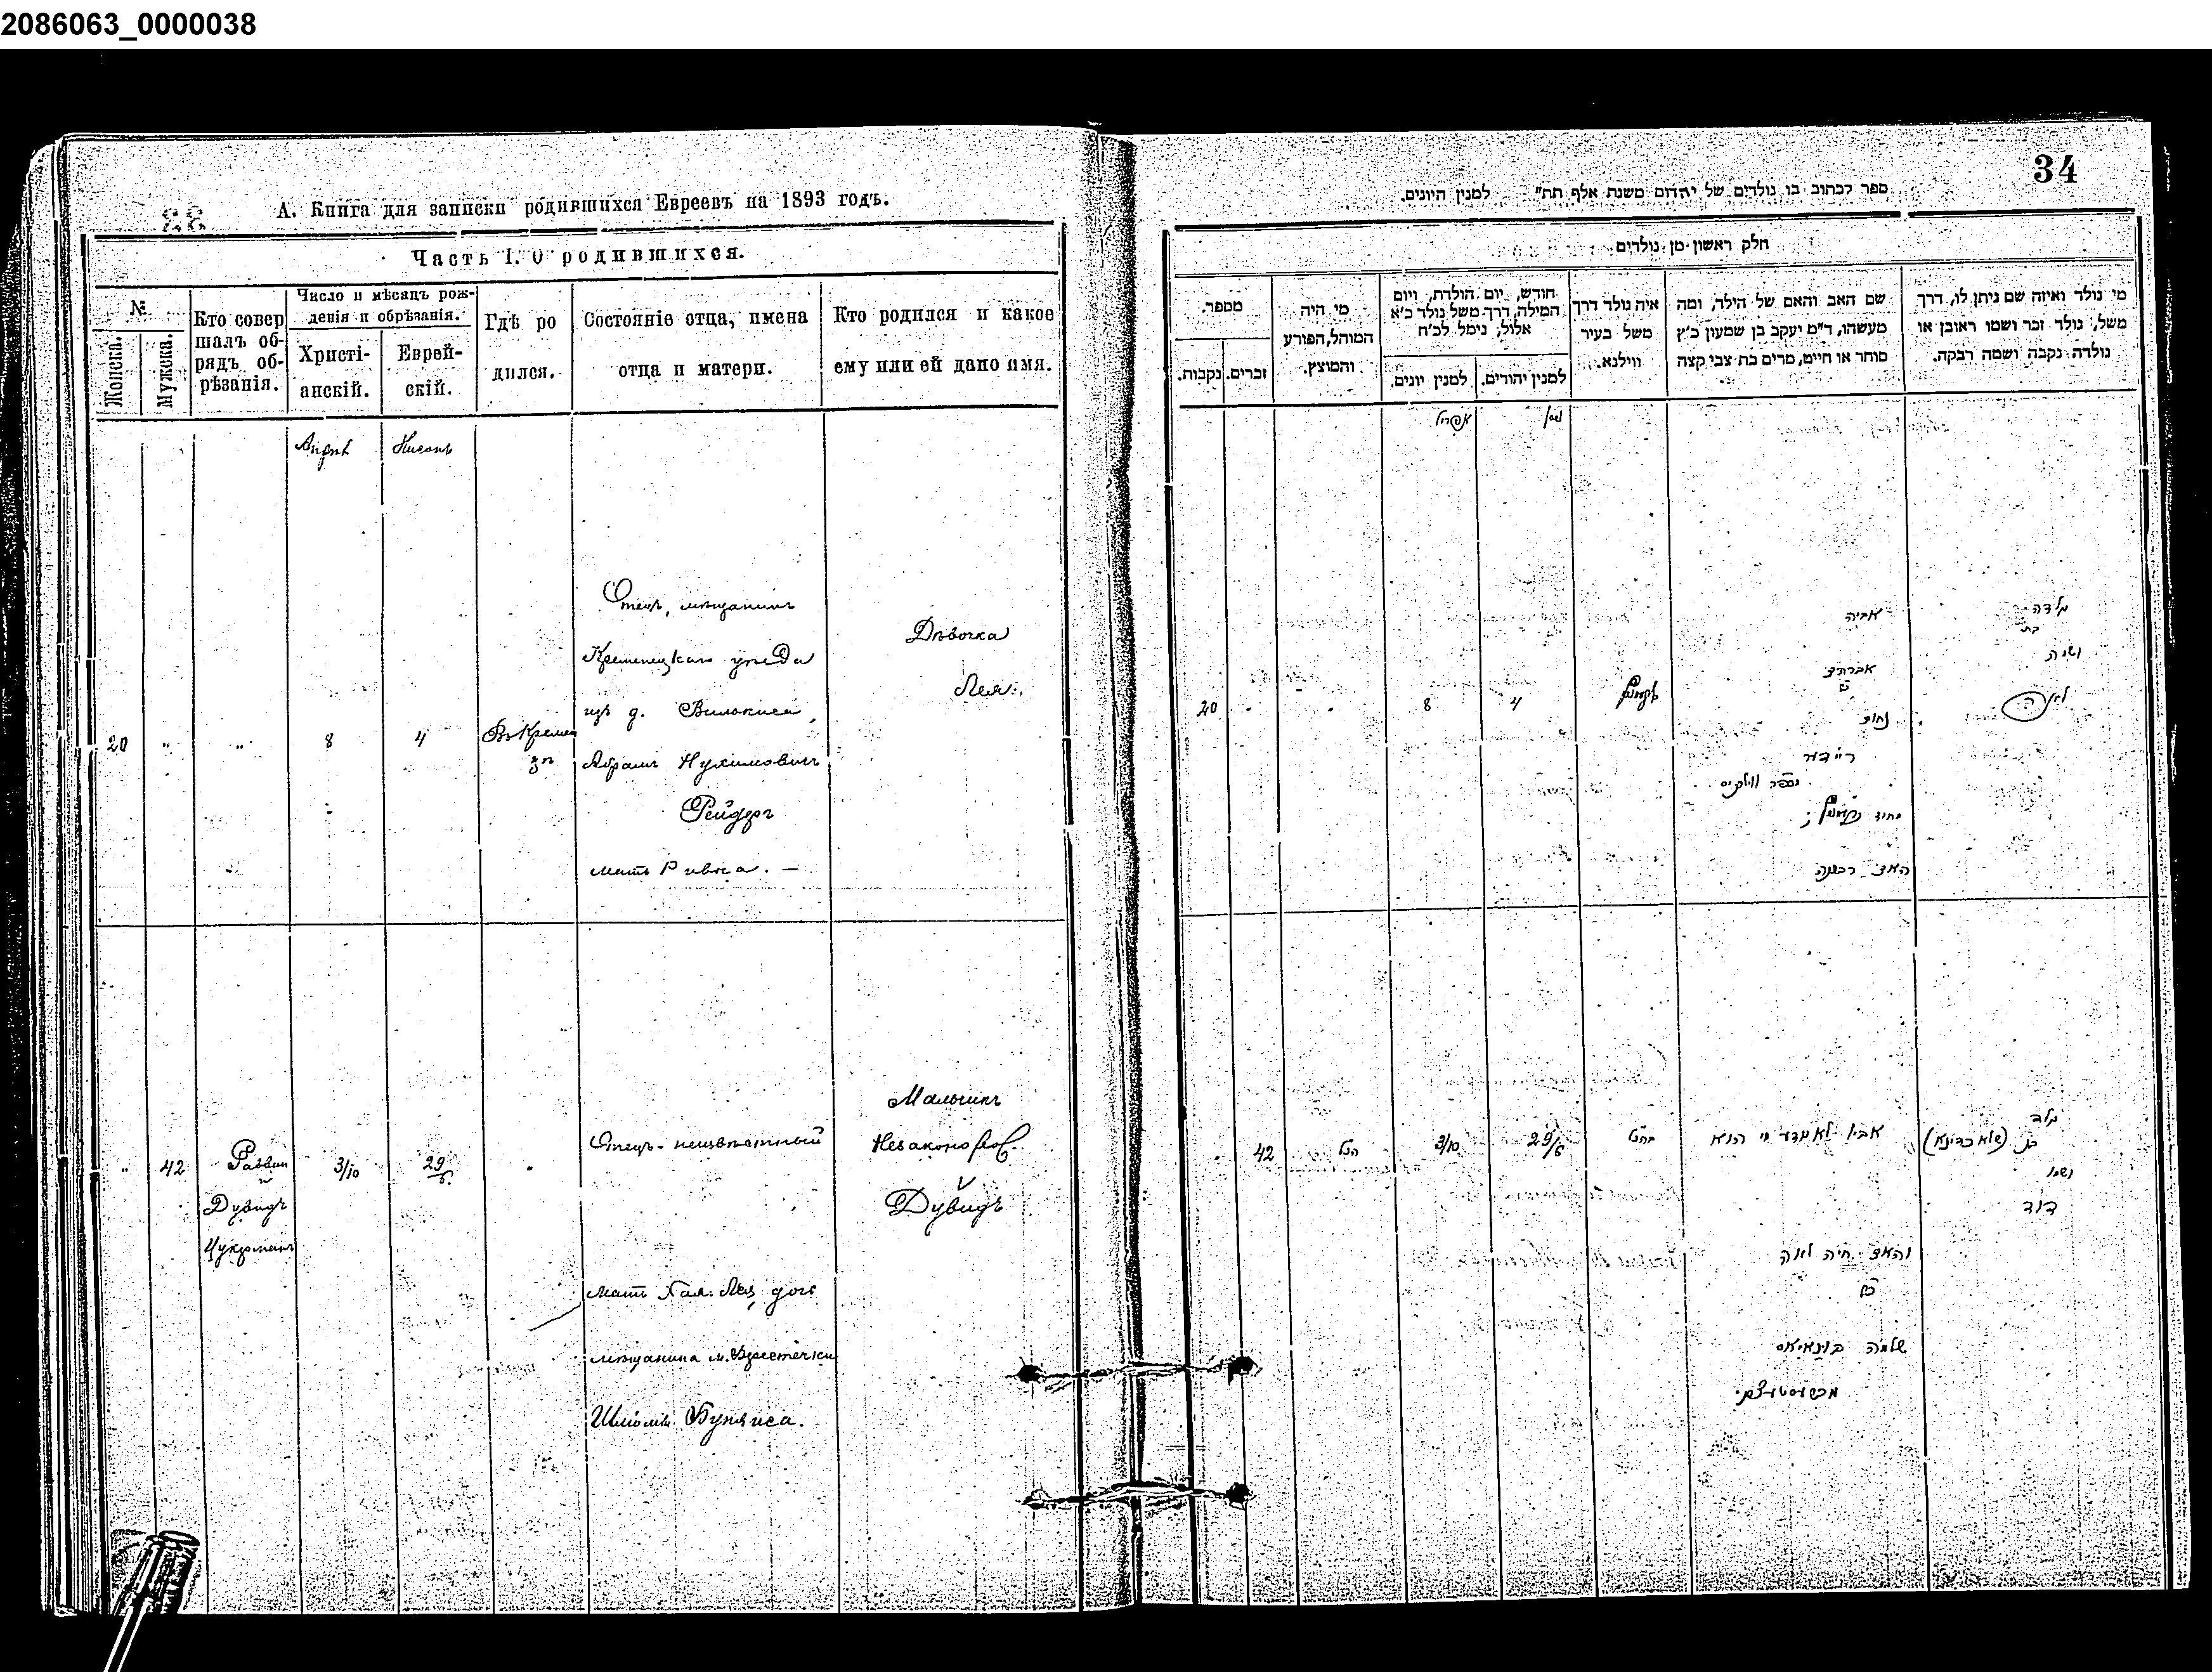 2086063_0000038
А. Книга для записки родившихся Евреевъ на 1893 годъ.
Часть I. О родившихся.
№
Женска.
Мужеска.
Кто совер
шалъ об-
рядъ об-
рѣзанія.
Число и мѣсяцъ рож-
денія и обрѣзанія.
Христі-
анскій.
Еврей-
скій.
Гдѣ ро
дился.
Состояніе отца, имена
отца и матери.
Кто родился и какое
ему или ей дано имя.
Нисанъ
20 " " 8 4
Отецъ, мѣщанинъ
Кременецкаго уѣзда
изъ д.
Абрамъ Нухимовичъ
Рейдеръ
мать Ривка. —
Дѣвочка
Лея
" 42
Раввин
Дувидъ
Цукерманъ
3/10
29/6
"
Отецъ - неизвѣстный
мать Хая Лея дочь
мѣщанина м. Берестечки
Шлома
Мальчикъ
Незаконоро
Дувидъ
34
ספר לכתוב בו נולדים של יהדום משנת אלף תת" למנין היונים.
חלק ראשון מן נולדים
מספר.
נקבות.
זכרים.
מי היה
המוהל, הפורע
והמוצץ.
חודש, יום הולדת, ויום
המילה, דרך משל נולד כ'א
אלול, נימל לכ'ח
למנין יונים.
למנין יהודים.
איה נולד דרך
משל בעיר
ווילנא.
שם האב והאם של הילד, ומה
מעשהו, ד"מ יעקב בן שמעון כ'ץ
סוחר או חייט, מרים בת צבי קצה
מי נולד ואיזה שם ניתן לו, דרך
משל, נולד זכר ושמו ראובן או
נולדה נקבה ושמה רבקה.
אפריל
ניסן
20
8
4
אביה
אברהם
נחום
ריידער
האם רבקה
נולדה
בת
ושמה
לאה
42
הנ"ל
3/10
29/6
והאם חיה לאה
שלמה
נולד
בן
ושמו
דוד